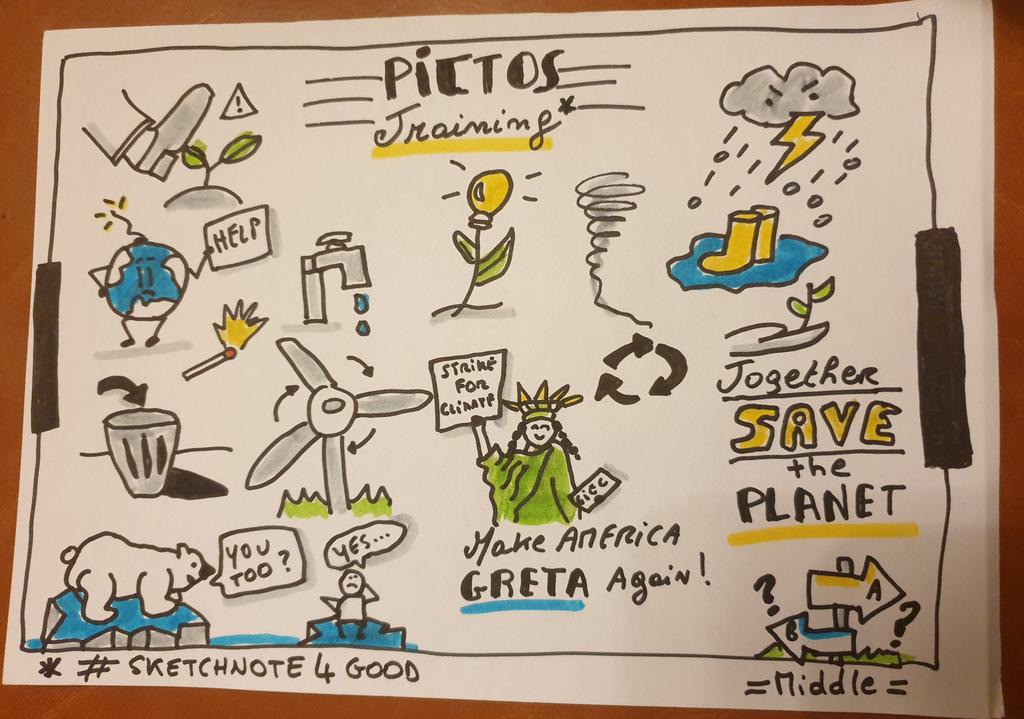 PiCTOS
Training*
HELP
STRIKE
FOR
CLIMATE
GiEC
Together
SAVE
the
PLANET
Make AMERICA
GRETA Again!
YOU
TOO?
YES...
?
A
B
?
* # SKETCHNOTE 4 GOOD
= Middle =